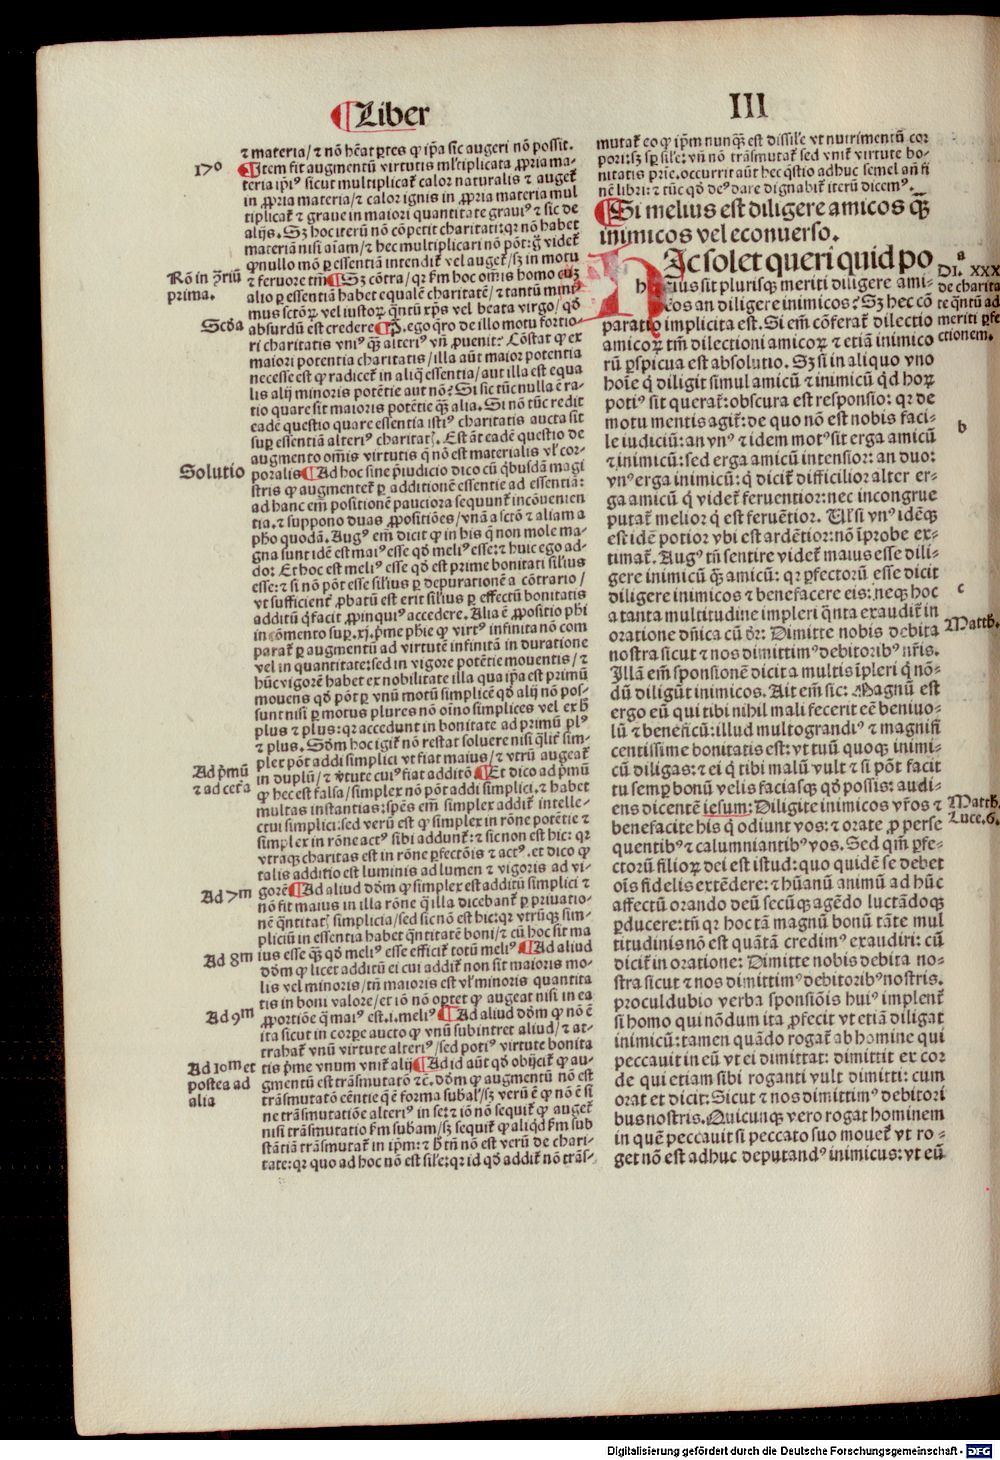 ¶Liber
III
⁊ materia/⁊ nõ hẽat ꝑtes ꝙ ip̃a sic augeri nõ possit.
17º
¶Item fit augmentũ virtutis ml̃tiplicata ꝓpria ma-
teria ip̃iꝰ sicut multiplicat̃ calor naturalis ⁊ auget̃
in ꝓpria materia/⁊ calor ignis in ꝓpria materia mul
tiplicat̃ ⁊ graue in maiori quantitate grauiꝰ ⁊ sic de
alijs. Sꝫ hoc iterũ nõ cõpetit charitati: qꝛ nõ habet
materiã nisi aĩam/⁊ hec multiplicari nõ põt: g̃ videt̃
ꝙ nullo mõ ꝑ essentiã intendit̃ vel auget̃/sꝫ in motu
Rõ in ꝯ̃triũ
prima.
⁊ feruore tm̃ ¶Sꝫ cõtra/qꝛ ẜm hoc om̃is homo cuꝫ
alio ꝑ essentiã habet equalẽ charitatẽ/⁊ tantũ mini
mus sctõꝝ vel iustoꝝ q̃ntũ xp̃s vel beata virgo/qd̃
Scd̃a
absurdũ est credere ¶P. ego q̃ro de illo motu fortio-
ri charitatis vniꝰ q̃ꝫ alteriꝰ vñ ꝓuenit: Cõstat ꝙ ex
maiori potentia charitatis/illa aũt maior potentia
necesse est ꝙ radicet̃ in aliq̃ essentia/aut illa est equa
lis alij minoris potẽtie aut nõ: Si sic tũc nulla ẽ ra-
tio quare sit maioris potẽtie q̃ꝫ alia. Si nõ tũc redit
eadẽ questio quare essentia istiꝰ charitatis aucta sit
suꝑ essentiã alteriꝰ charitat̃. Est ãt eadẽ questio de
augmento om̃is virtutis q̃ nõ est materialis vl̃ cor-
Solutio
poralis ¶Ad hoc sine p̃iudicio dico cũ q̃busdã magi
stris ꝙ augmentet̃ ꝑ additionẽ essentie ad essentiã:
ad hanc em̃ positionẽ pauciora sequunt̃ incõuenien
tia. ⁊ suppono duas ꝓpositiões/vnã a sctõ ⁊ aliam a
ph̃o quodã. Augꝰ em̃ dicit ꝙ in his q̃ non mole ma-
gna sunt idẽ est maiꝰ esse qd̃ meliꝰ esse: ⁊ huic ego ad-
do: Et hoc est meliꝰ esse qd̃ est prime bonitati sil̃ius
esse: ⁊ si nõ põt esse sil̃ius ꝑ depurationẽ a cõtrario/
vt sufficient̃ ꝓbatũ est erit sil̃ius ꝑ effectũ bonitatis
additũ q̃ facit ꝓpinquiꝰ accedere. Alia ẽ ꝓpositio ph̃i
in cõmento suꝑ. xj. p̃me ph̃ie ꝙ virtꝰ infinita nõ com
parat̃ ꝑ augmentũ ad virtutẽ infinitã in duratione
vel in quantitate: sed in vigore potẽtie mouentis/⁊
hũc vigorẽ habet ex nobilitate illa qua ip̃a est primũ
mouens qd̃ põt ꝑ vnũ motũ simplicẽ qd̃ alij nõ pos-
sunt nisi ꝑ motus plures nõ oĩno simplices vel ex h̃
plus ⁊ plus: qꝛ accedunt in bonitate ad primũ plꝰ
⁊ plus. Scd̃m hoc igit̃ nõ restat soluere nisi q̃lit̃ sim-
plex põt addi simplici vt fiat maius/⁊ vtrũ augeat̃
Ad p̃mũ
⁊ ad cet̃a
in duplũ/⁊ v̓tute cuiꝰ fiat additõ ¶Et dico ad p̃mũ
ꝙ hec est falsa/simplex nõ põt addi simplici. ⁊ habet
multas instantias: sp̃es em̃ simplex addit̃ intelle-
ctui simplici: sed verũ est ꝙ simplex in rõne potẽtie ⁊
simplex in rõne actꝰ sibi addunt̃: ⁊ sic non est hic: qꝛ
vtraqꝫ charitas est in rõne ꝑfectõis ⁊ actꝰ. et dico ꝙ
talis additio est luminis ad lumen ⁊ vigoris ad vi-
Ad 7m
gorẽ ¶Ad aliud dd̃m ꝙ simplex est additũ simplici ⁊
nõ fit maius in illa rõne q̃ illa dicebant̃ ꝑ priuatio-
nẽ q̃ntitat̃ simplicia/sed sic nõ est hic: qꝛ vtrũqꝫ sim-
pliciũ in essentia habet q̃ntitatẽ boni/⁊ cũ hoc sit ma
Ad 8m
ius esse q̃ꝫ qd̃ meliꝰ esse efficit̃ totũ meliꝰ ¶Ad aliud
dd̃m ꝙ licet additũ ei cui addit̃ non sit maioris mo-
lis vel minoris/tñ maioris est vl̃ minoris quantita
tis in boni valore/et iõ nõ oꝑtet ꝙ augeat nisi in ea
Ad 9m
ꝓportiõe q̃ maiꝰ est. i. meliꝰ ¶Ad aliud dd̃m ꝙ nõ ẽ
ita sicut in corꝑe aucto ꝙ vnũ subintret aliud/⁊ at-
trahat̃ vnũ virtute alteriꝰ/sed potiꝰ virtute bonita
Ad 10m et
postea ad
alia
tis p̃me vnum vnit̃ alij ¶Ad id aũt qd̃ obijcit̃ ꝙ au-
gmentũ est trãsmutatõ ⁊c̃. dd̃m ꝙ augmentũ nõ est
trãsmutatõ eẽntie q̃ ẽ forma subal̃/sꝫ verũ ẽ ꝙ nõ ẽ si
ne trãsmutatiõe alteriꝰ in se: ⁊ iõ nõ sequit̃ ꝙ auget̃
nisi trãsmutatio ẜm subam/sꝫ sequit̃ ꝙ aliqd̃ ẜm sub
stãtiã trãsmutat̃ in ip̃m: ⁊ h̃ tñ nõ est verũ de chari-
tate: qꝛ quo ad hoc nõ est sil̃e: qꝛ id qd̃ addit̃ nõ trãs-
mutat̃ eo ꝙ ip̃m nunq̃ꝫ est dissil̃e vt nutrimentũ cor
pori: sꝫ sꝑ sil̃e: vñ nõ trãsmutat̃ sed vnit̃ virtute bo-
nitatis prĩe. occurrit aũt hec q̃stio adhuc semel añ fi
nẽ libri: ⁊ tũc qd̃ deꝰ dare dignabit̃ iterũ dicemꝰ.
¶Si melius est diligere amicos q̃ꝫ
inimicos vel econuerso.
HIc solet queri quid po
tius sit plurisqꝫ meriti diligere ami-
cos an diligere inimicos: Sꝫ hec cõ
a
DI. XXX
de charita
te q̃ntũ ad
meriti ꝑfe
ctionem.
paratio implicita est. Si em̃ cõferat̃ dilectio
amicoꝝ tm̃ dilectioni amicoꝝ ⁊ etiã inimico
rũ ꝑspicua est absolutio. Sꝫ si in aliquo vno
hoĩe q̃ diligit simul amicũ ⁊ inimicũ q̃d hoꝝ
potiꝰ sit querat̃: obscura est responsio: qꝛ de
motu mentis agit̃: de quo nõ est nobis faci-
b
le iudiciũ: an vnꝰ ⁊ idem motꝰ sit erga amicũ
⁊ inimicũ: sed erga amicũ intensior: an duo:
vnꝰ erga inimicũ: q̃ dicit̃ difficilior alter er-
ga amicũ q̃ videt̃ feruentior: nec incongrue
putat̃ melior q̃ est feruẽtior. Ul̃ si vnꝰ idẽqꝫ
est idẽ potior vbi est ardẽtior: nõ ĩprobe ex-
timat̃. Augꝰ tñ sentire videt̃ maius esse dili-
gere inimicũ q̃ꝫ amicũ: qꝛ ꝑfectorũ esse dicit
c
diligere inimicos ⁊ benefacere eis: neqꝫ hoc
a tanta multitudine impleri q̃nta exaudit̃ in
Matth.
oratione dñica cũ dr̃: Dimitte nobis debita
nostra sicut ⁊ nos dimittimꝰ debitoribꝰ nr̃is.
Illã em̃ sponsionẽ dicit a multis ĩpleri q̃ nõ-
dũ diligũt inimicos. Ait em̃ sic: Magnũ est
ergo eũ qui tibi nihil mali fecerit eẽ beniuo-
lũ ⁊ beneficũ: illud multo grandiꝰ ⁊ magnifi
centissime bonitatis est: vt tuũ quoqꝫ inimi-
cũ diligas: ⁊ ei q̃ tibi malũ vult ⁊ si põt facit
tu semꝑ bonũ velis faciasqꝫ qd̃ possis: audi-
Matth.
Luce. 6.
ens dicentẽ iesum: Diligite inimicos vr̃os ⁊
benefacite his q̃ odiunt vos: ⁊ orate ꝓ perse
quentibꝰ ⁊ calumniantibꝰ vos. Sed qm̃ ꝑfe-
ctorũ filioꝝ dei est istud: quo quidẽ se debet
oĩs fidelis extẽdere: ⁊ hũanũ animũ ad hũc
affectũ orando deũ secũqꝫ agẽdo luctãdoqꝫ
ꝑducere: tñ qꝛ hoc tã magnũ bonũ tãte mul
titudinis nõ est quãtã credimꝰ exaudiri: cũ
dicit̃ in oratione: Dimitte nobis debita no-
stra sicut ⁊ nos dimittimꝰ debitoribꝰ nostris.
proculdubio verba sponsiõis huiꝰ implent̃
si homo qui nõdum ita ꝓfecit vt etiã diligat
inimicũ: tamen quãdo rogat̃ ab homine qui
peccauit in eũ vt ei dimittat: dimittit ex cor
de qui etiam sibi roganti vult dimitti: cum
orat et dicit: Sicut ⁊ nos dimittimꝰ debitori
bus nostris. Quicunqꝫ vero rogat hominem
in quẽ peccauit si peccato suo mouet̃ vt ro-
get nõ est adhuc deputandꝰ inimicus: vt eũ
Digitalisierung gefördert durch die Deutsche Forschungsgemeinschaft - DFG